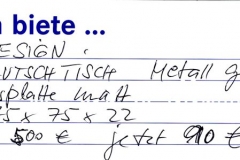 n biete ...
ESIGN.
UTSCHTISCH Metall g
splatte matt
75 x 75 x 22
500 € jetzt 90 €